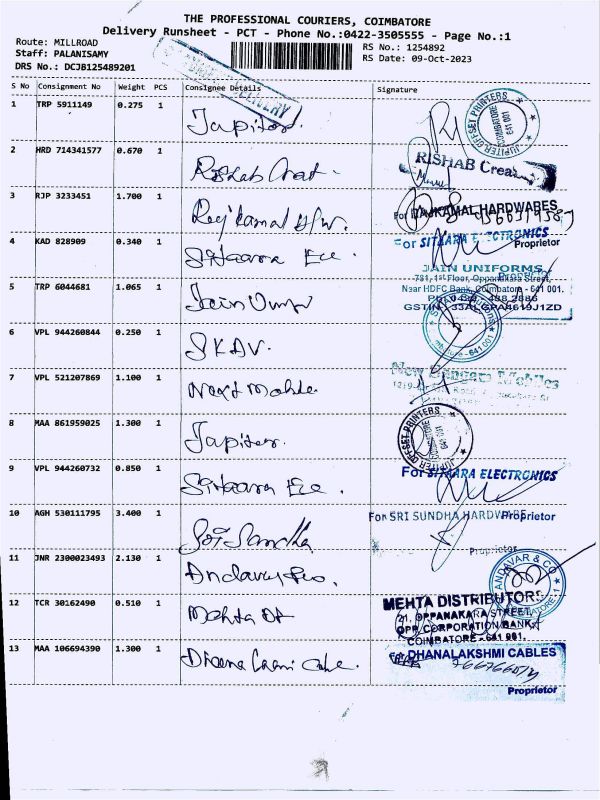 THE PROFESSIONAL COURIERS, COIMBATORE
Delivery Runsheet - PCT - Phone No.:0422-3505555 - Page No.:1
Route: MILLROAD
Staff: PALANISAMY
DRS No.: DCJB125489201
RS No.: 1254892
RS Date: 09-Oct-2023
S No Consignment No Weight PCS Consignee Details Signature
1 TRP 5911149 0.275 1 Jupiter
JUPITER OFFSET PRINTERS COIMBATORE 641 001
2 HRD 714341577 0.670 1 Rishab Creat
RISHAB Crea
3 RJP 3233451 1.700 1 Rajkamal H/W
For RAJKAMAL HARDWARES
4 KAD 828909 0.340 1 Sitaara Ele
For SITAARA ELECTRONICS
Proprietor
JAIN UNIFORMS
781, 1st Floor, Oppanakara Street,
Near HDFC Bank, Coimbatore - 641 001.
5 TRP 6044681 1.065 1 Jain Unifor
6 VPL 944260844 0.250 1 SKAV
641 001
7 VPL 521207869 1.100 1 Next Mobile
8 MAA 861959025 1.300 1 Jupiter
JUPITER OFFSET PRINTERS
9 VPL 944260732 0.850 1 Sitaara Ele
For SITAARA ELECTRONICS
Proprietor
10 AGH 530111795 3.400 1 Sri Sundha
For SRI SUNDHA HARDWARES
Proprietor
11 JNR 2300023493 2.130 1 Andavar &co
ANDAVAR & CO
12 TCR 30162490 0.510 1 Mehta Dt
MEHTA DISTRIBUTORS
21, OPPANAKARA STREET,
OPP CORPORATION BANK,
COIMBATORE - 641 001.
13 MAA 106694390 1.300 1 Dhana Laxmi Cable
For DHANALAKSHMI CABLES
Proprietor